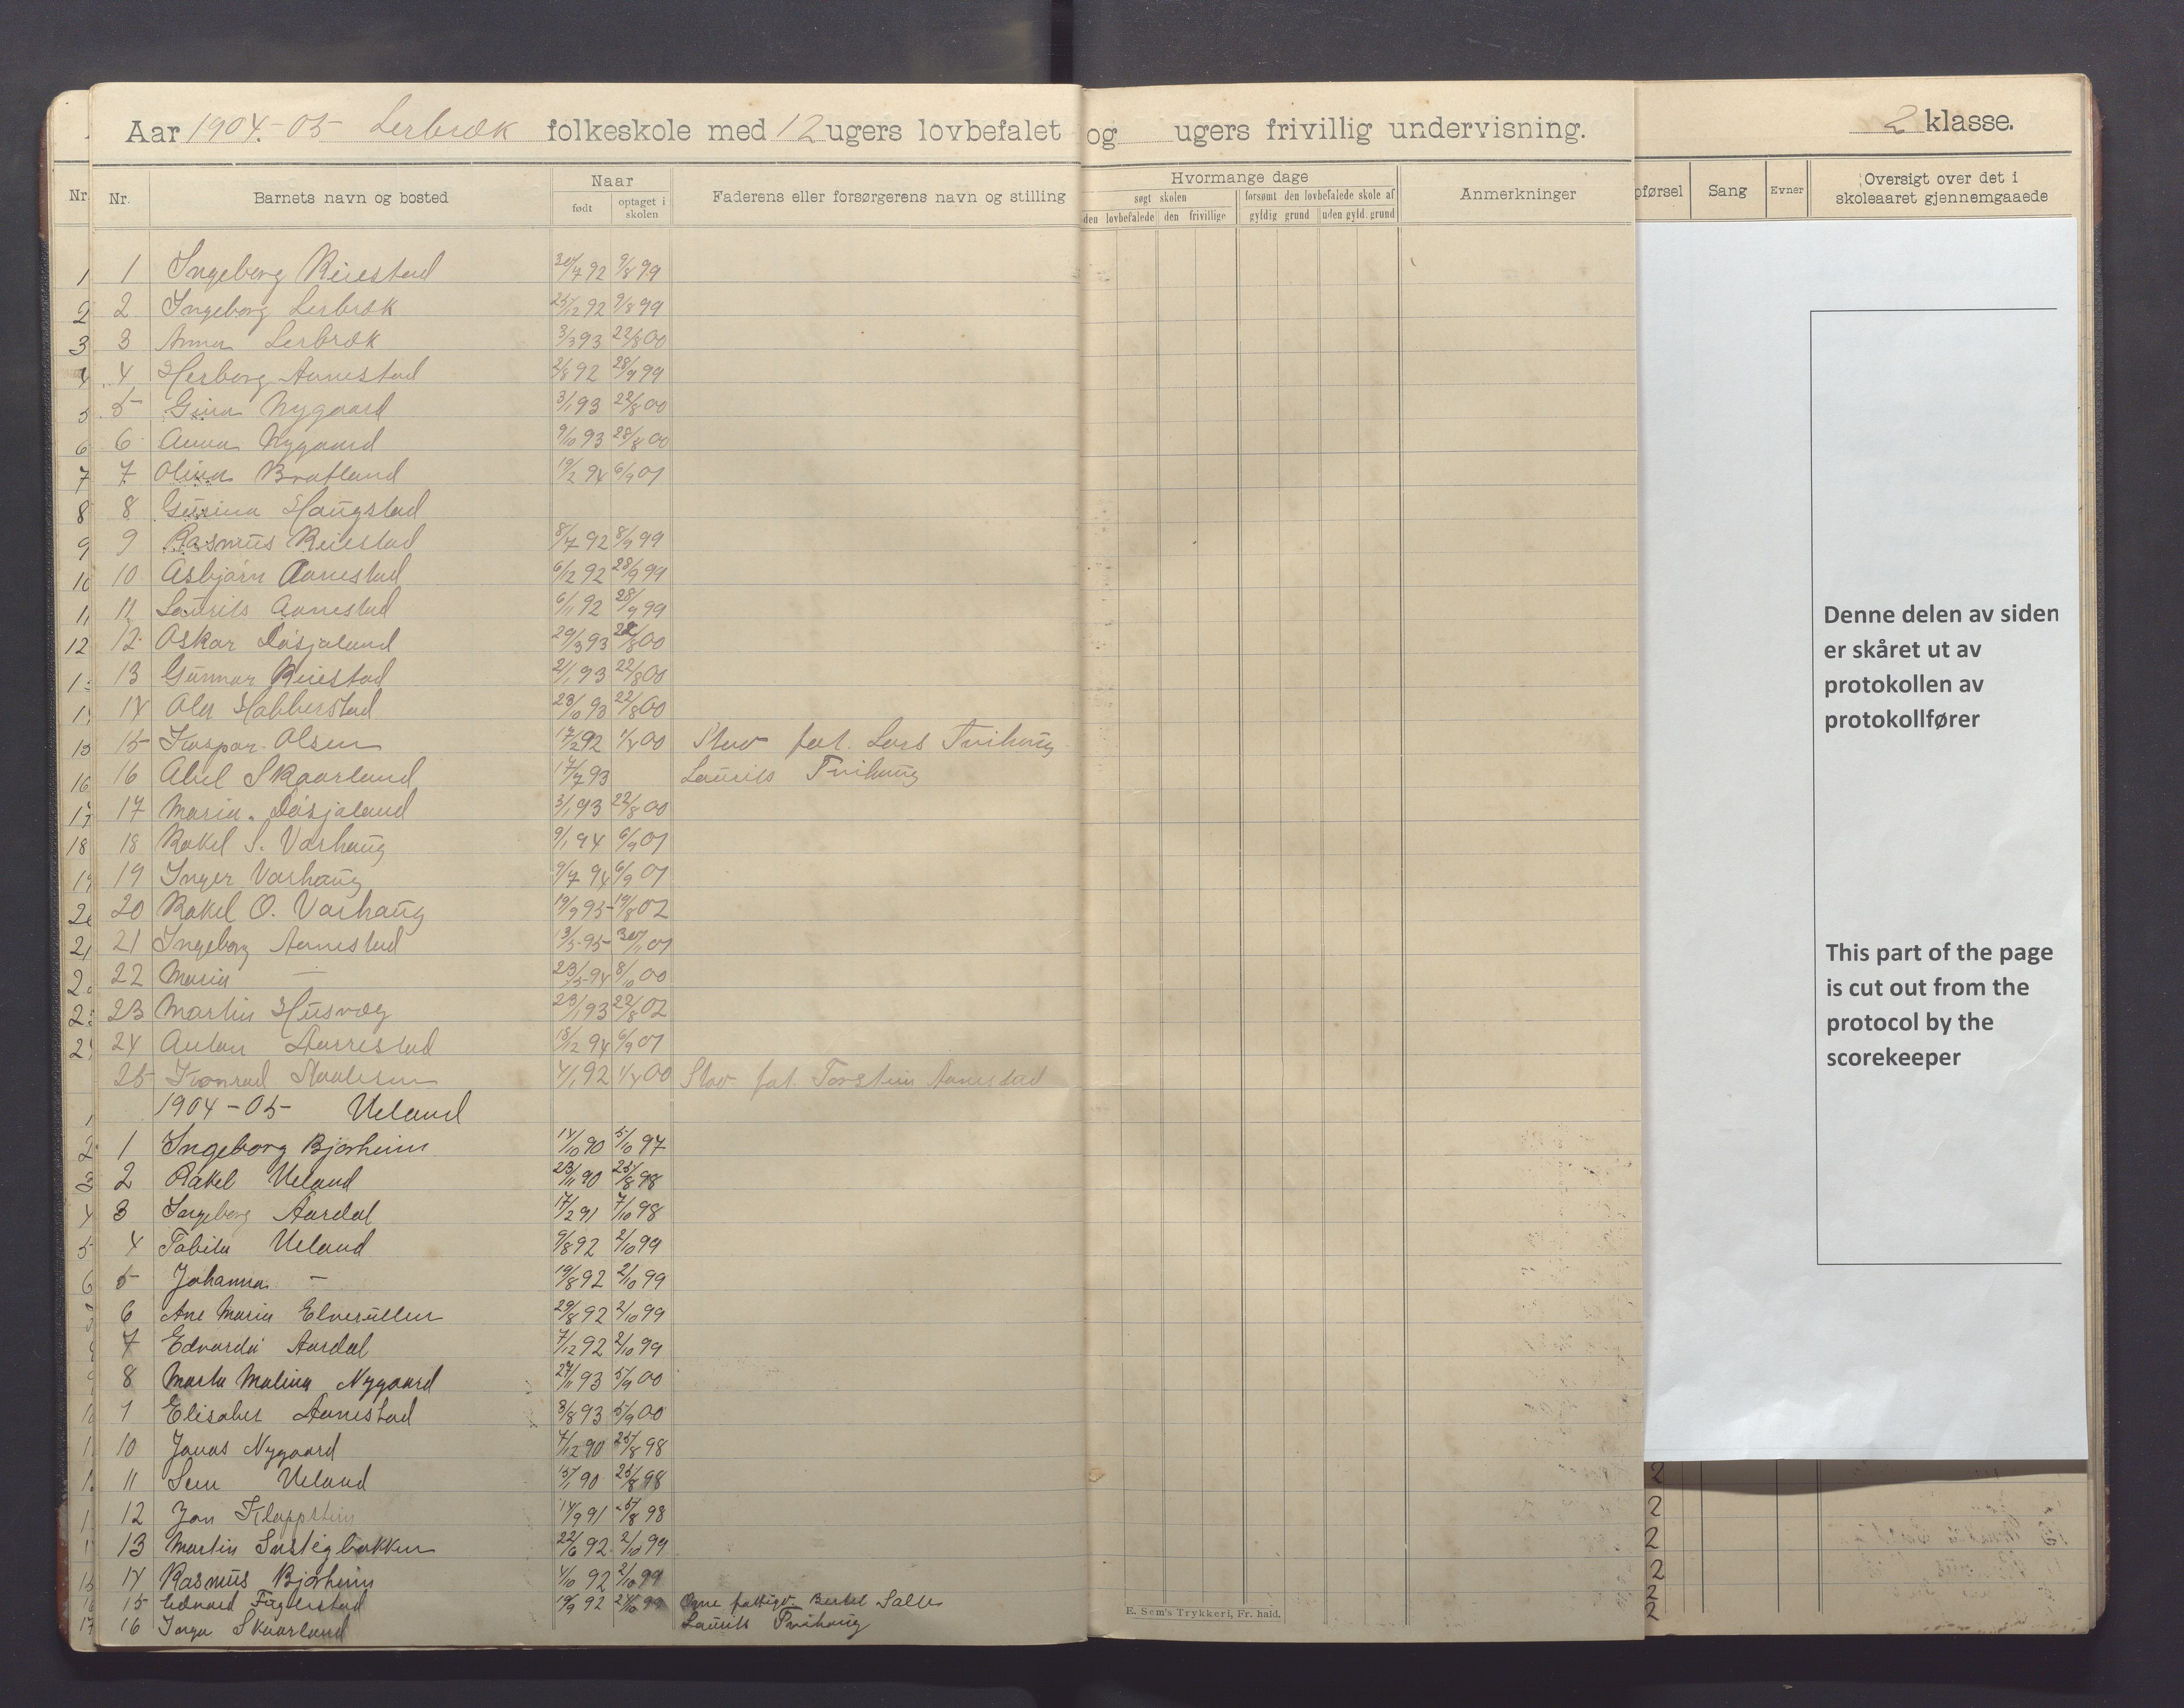 Aar 1904-05 Lerbræk folkeskole med 12 ugers lovbefalet og ugers frivillig undervisning. 2 klasse.
Nr. Nr. Barnets navn og bosted Naar født optaget i skolen Faderens eller forsørgerens navn og stilling
Hvormange dage
søgt skolen forsømt den lovbefalede skole af
den lovbefalede den frivillige gyldig grund uden gyld. grund
Anmerkninger
pførsel Sang Evner Oversigt over det i skoleaaret gjennemgaaede
1 1 Ingeborg Reiestad 30/7 92 9/8 99
2 2 Ingeborg Lerbræk 25/12 92 9/8 99
3 3 Anna Lerbræk 3/3 93 22/8 00
4 4 Herborg Aanestad 2/8 92 28/9 99
5 5 Gina Nygaard 3/1 93 22/8 00
6 6 Anna Nygaard 9/10 93 28/8 00
7 7 Olina Bratland 19/2 94 6/9 01
8 8 Gurina Haugstad
9 9 Rasmus Reiestad 8/7 92 8/9 99
10 10 Asbjørn Aanestad 6/12 92 28/9 99
11 11 Laurits Aanestad 6/11 92 28/9 99
12 12 Oskar Døsjaland 29/3 93 22/8 00
13 Gunnar Reiestad 2/1 93 22/8 00
14 Ole Habberstad 23/10 93 22/8 00
15 15 Kaspar Olsen 17/2 92 1/4 00 Stav fat. Lars Tvihaug
16 16 Abel Skaarland 17/7 93 Laurits Tvihaug
17 17 Maria Døsjaland 3/1 93 22/8 00
18 18 Rakel S. Varhaug 9/1 94 6/9 01
19 19 Inger Varhaug 9/7 94 6/9 01
20 20 Rakel O. Varhaug 19/9 95 19/8 02
21 21 Ingeborg Aanestad 13/5 95 30/11 01
22 Maria — 23/5 94 8/10 00
23 Martin Husvæg 23/1 93 22/8 02
24 Anton Aarrestad 18/12 94 6/9 01
25 Konrad Paulsen 4/1 92 1/4 00 Stav fat. Torstein Aanestad
1904-05 Ueland
1 Ingeborg Bjørheim 14/10 90 5/10 97
2 Rakel Ueland 23/11 90 25/8 98
3 Ingeborg Aardal 17/2 91 7/10 98
4 Tabita Ueland 9/8 92 2/10 99
5 Johanna — 19/8 92 2/10 99
6 Ane Maria 29/8 92 2/10 99
7 Edvarda Aardal 7/12 92 2/10 99
8 Marta Malina Nygaard 27/11 93 5/9 00
1 Elisabet Aanestad 3/8 93 5/9 00
10 Jonas Nygaard 7/12 90 25/8 98
11 Sem Ueland 15/1 90 25/8 98
12 Jan Kloppstein 14/9 91 25/8 98
13 Martin 22/6 92 2/10 99
14 Rasmus Bjørheim 4/10 92 2/10 99
15 Edvard Fuglestad 19/9 92 24/10 99 Ogne fattigv. Bertel Salte
16 Inga Skaarland Laurits Tvihaug
E. Sem's Trykkeri, Fr. hald.
Denne delen av siden
er skåret ut av
protokollen av
protokollfører
This part of the page
is cut out from the
protocol by the
scorekeeper
2
2
2
2
2
2